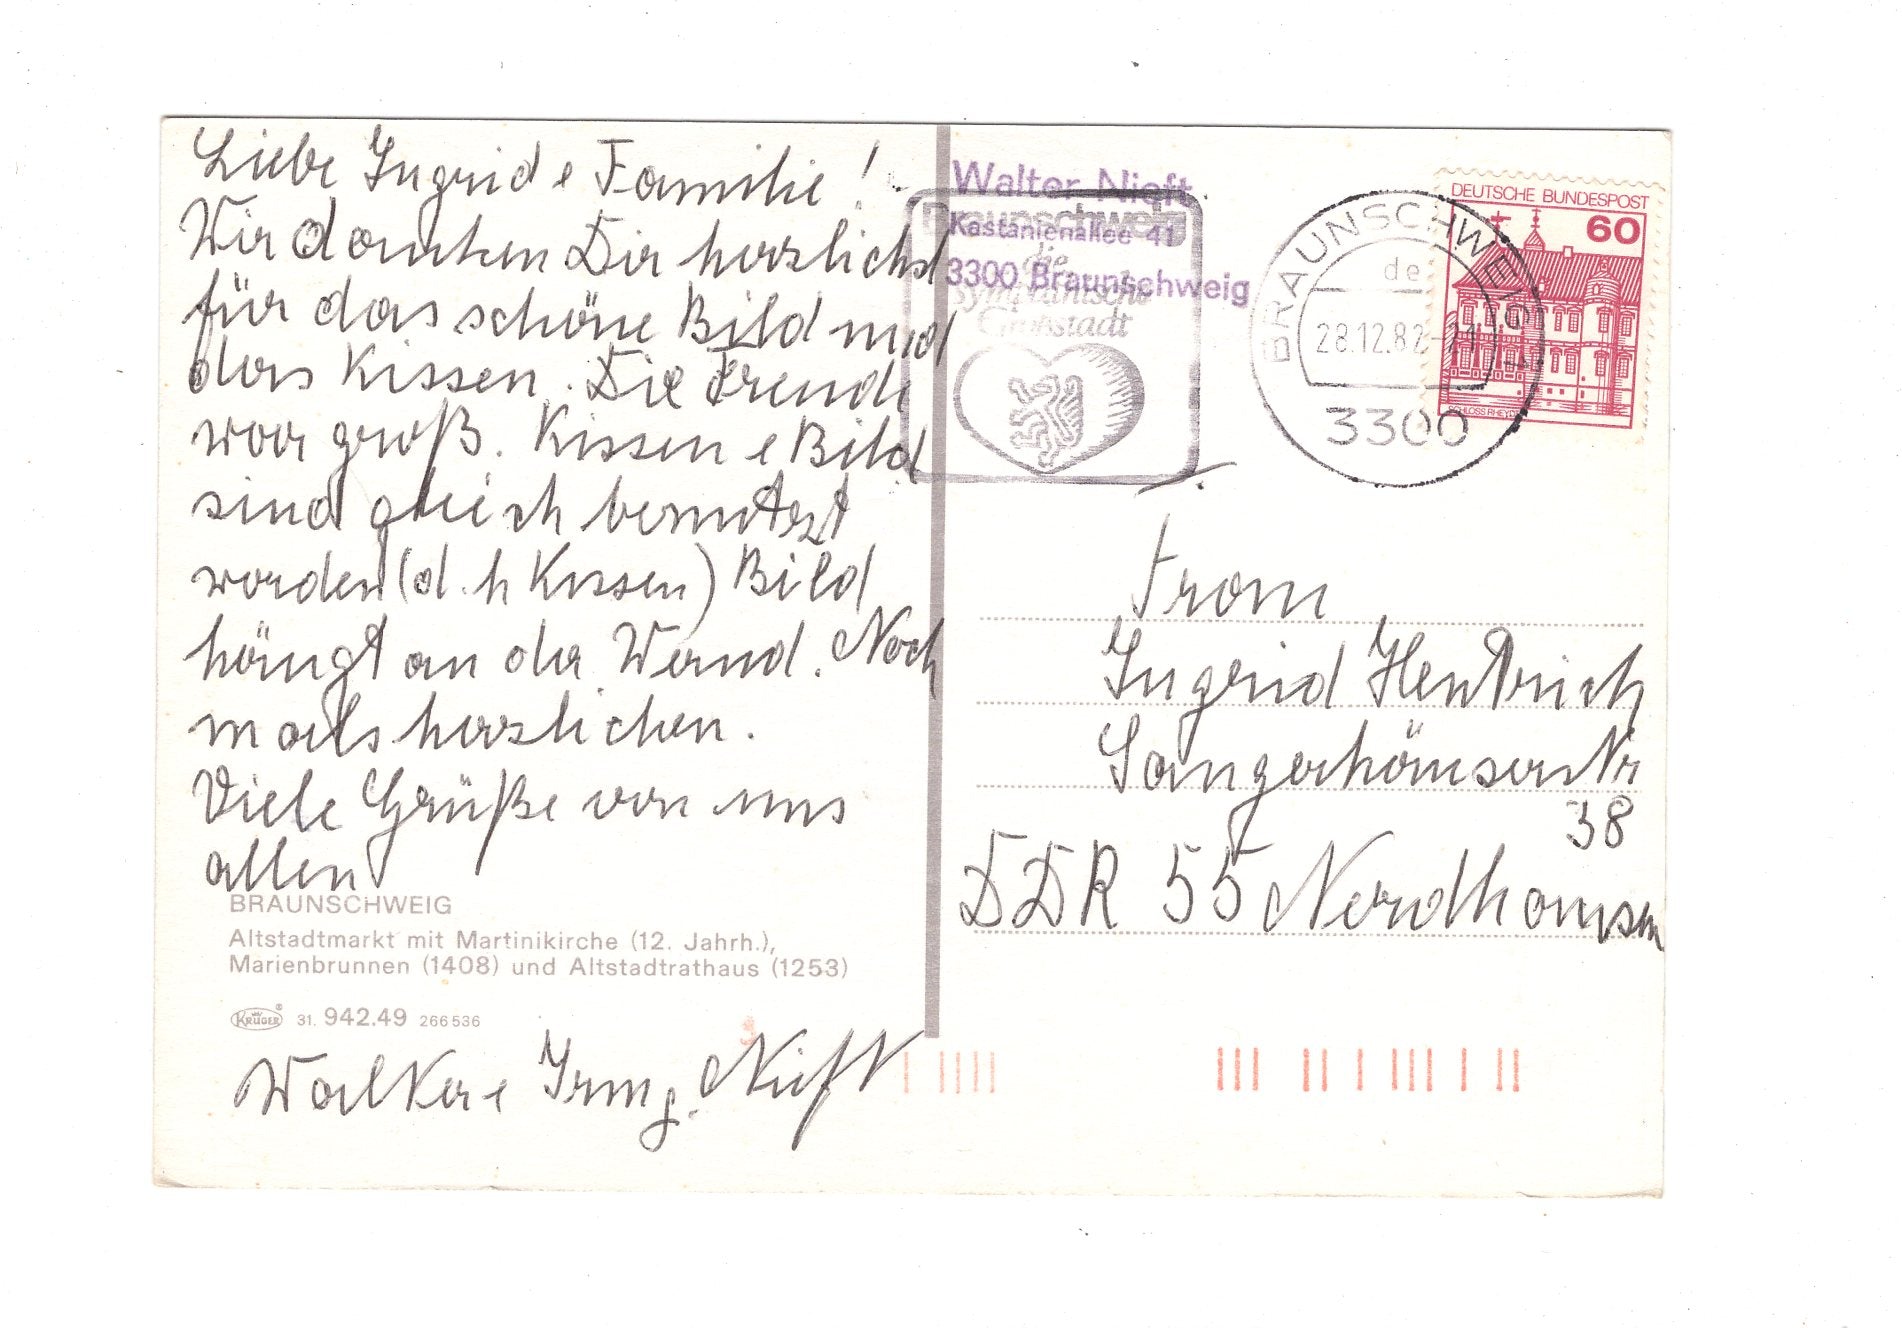 Liebe Ingrid e Familie!
Wir danken Dir herzlichst
für das schöne Bild und
das Kissen. Die Freude
war groß. Kissen e Bild
sind gleich benutzt
worden (d.h Kissen) Bild
hängt an der Wand. Noch
mals herzlichen.
Viele Grüße von uns
allen
BRAUNSCHWEIG
Altstadtmarkt mit Martinikirche (12. Jahrh.),
Marienbrunnen (1408) und Altstadtrathaus (1253)
KRÜGER® 31. 942.49 266536
Walter e Irmg. Nieft
Walter Nieft
Kastanienallee 41
3300 Braunschweig
Braunschweig
die
sympathische
Großstadt
BRAUNSCHWEIG 1
de
28.12.82-21
3300
DEUTSCHE BUNDESPOST
60
SCHLOSS RHEYDT
Frau
Ingrid Hentrich
Sangerhäuser Nr
38
DDR 55 Nordhausen